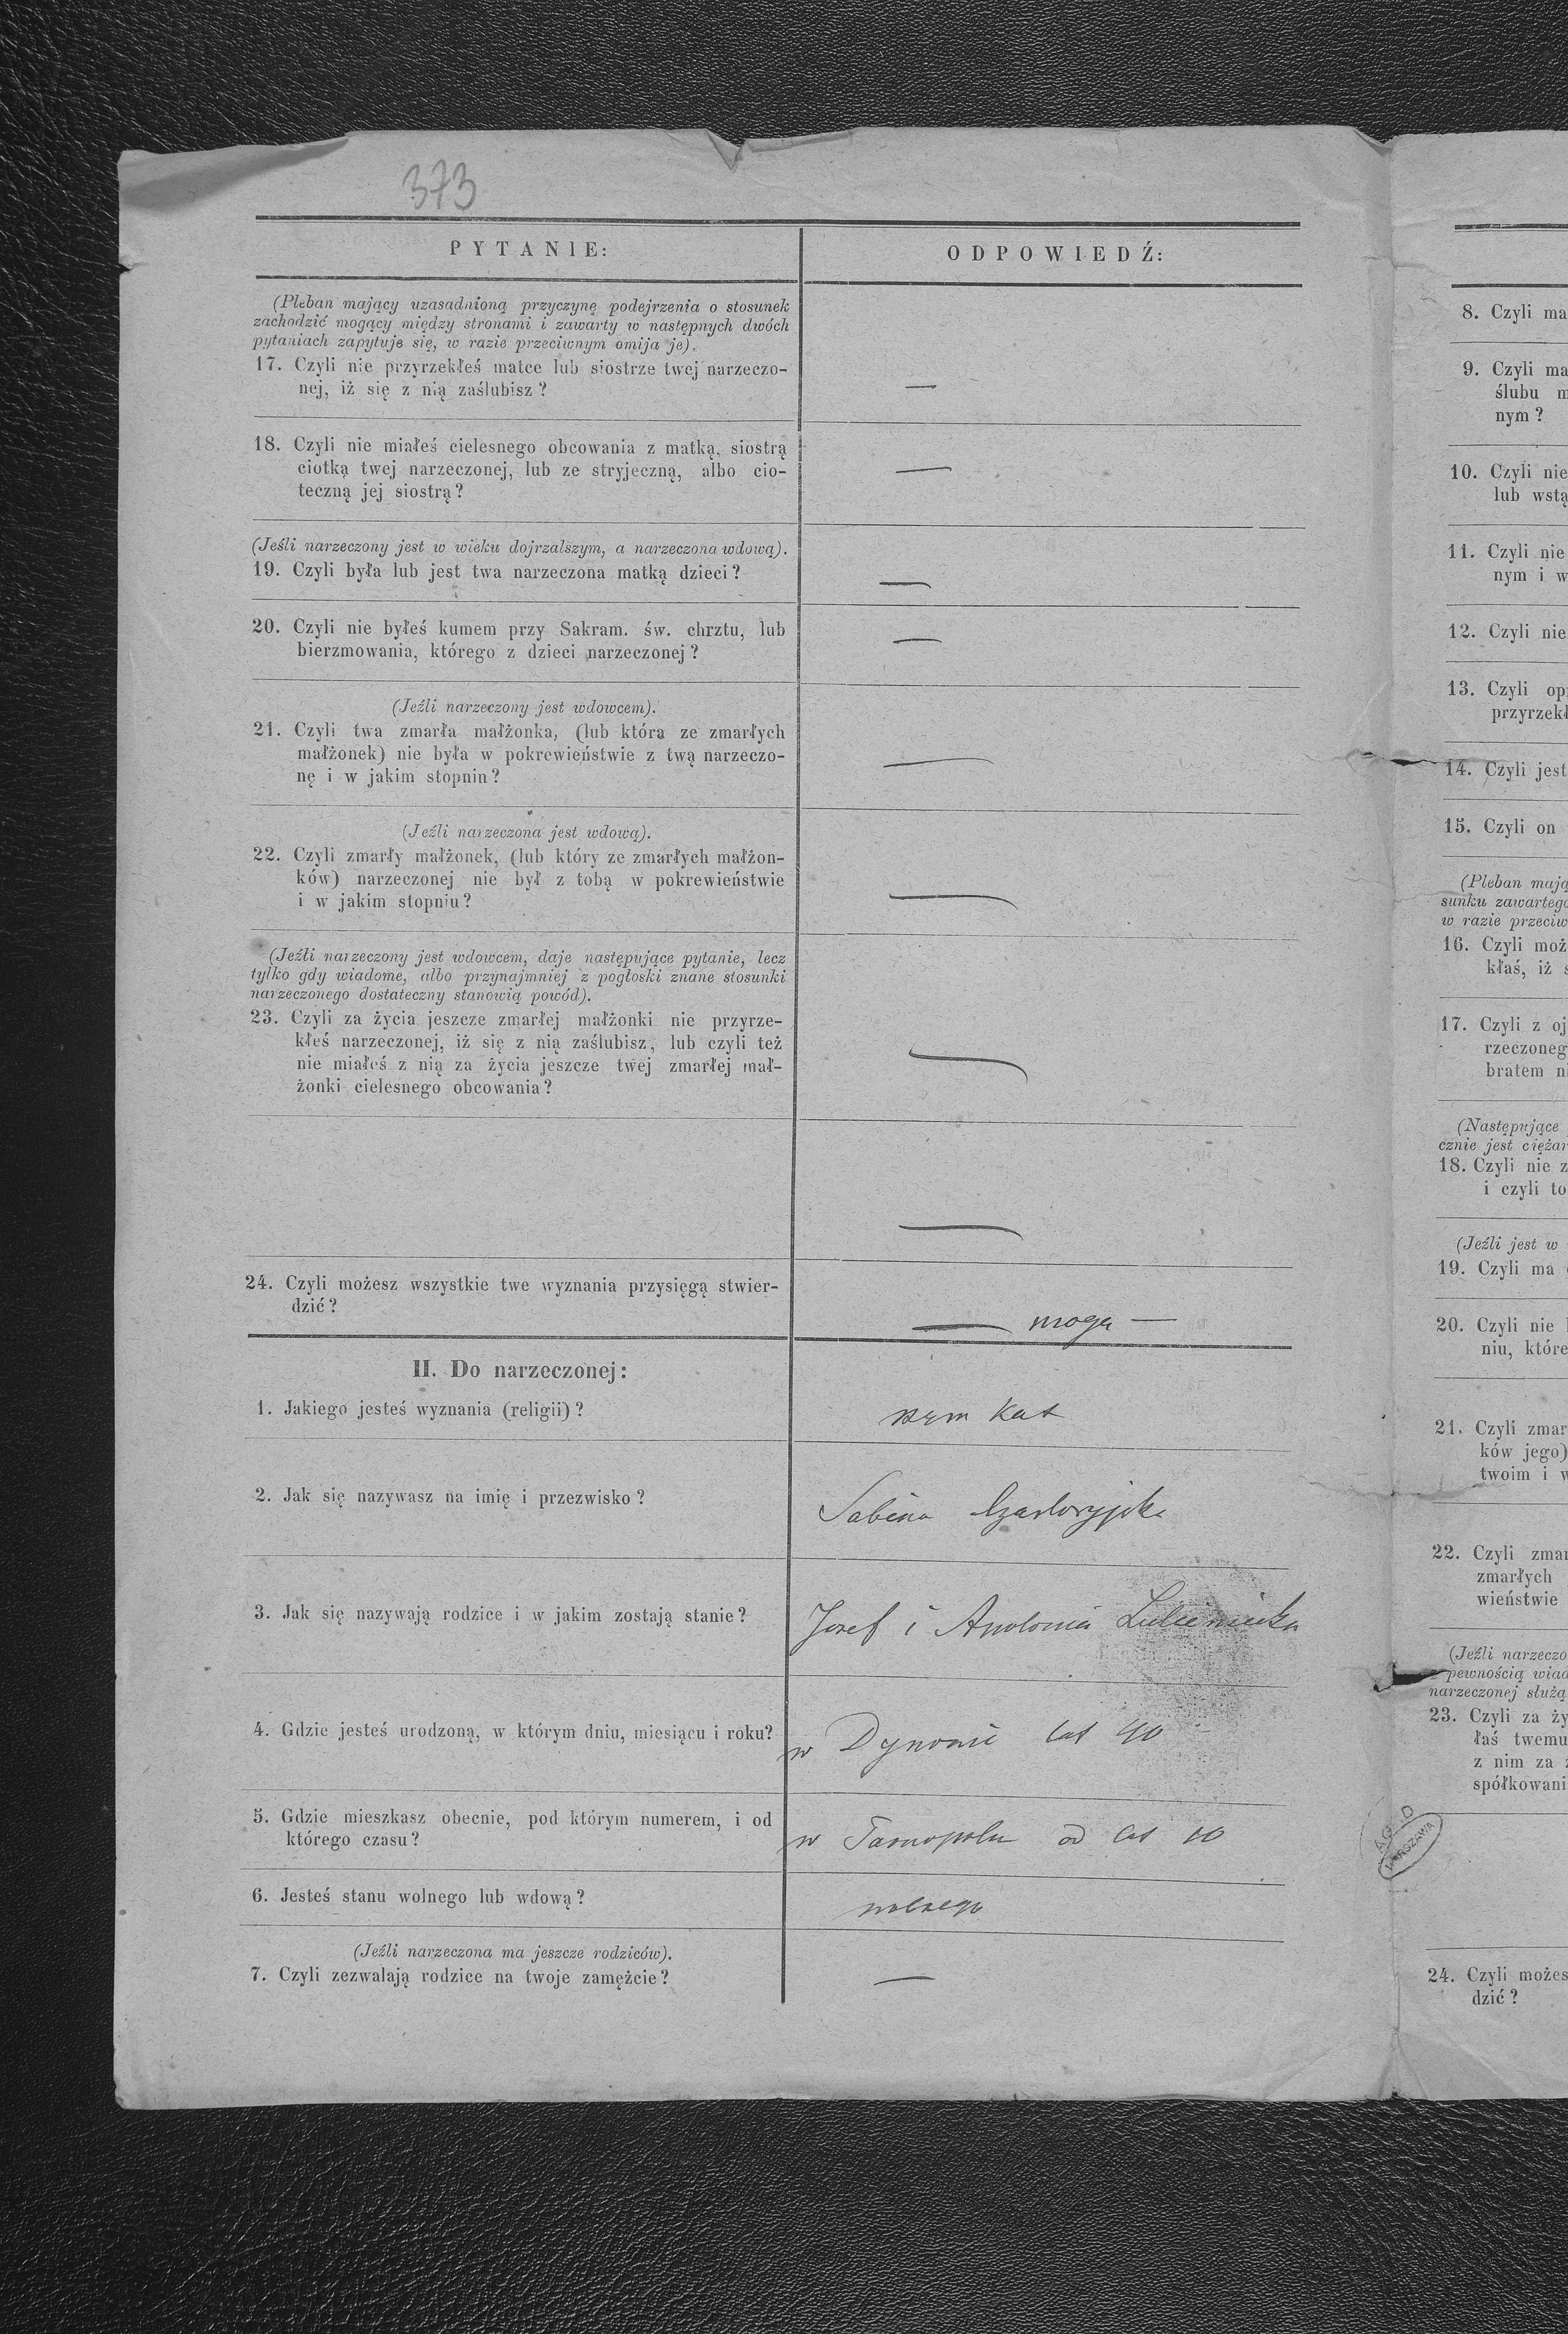 373
PYTANIE:
ODPOWIEDŹ:
(Pleban mający uzasadnioną przyczynę podejrzenia o stosunek
zachodzić mogący między stronami i zawarty w następnych dwóch
pytaniach zapytuje się, w razie przeciwnym omija je).
17. Czyli nie przyrzekłeś matce lub siostrze twej narzeczo-
nej, iż się z nią zaślubisz?
—
18. Czyli nie miałeś cielesnego obcowania z matką, siostrą
ciotką twej narzeczonej, lub ze stryjeczną, albo cio-
teczną jej siostrą?
—
(Jeśli narzeczony jest w wieku dojrzalszym, a narzeczona wdową).
19. Czyli była lub jest twa narzeczona matką dzieci?
—
20. Czyli nie byłeś kumem przy Sakram. św. chrztu, lub
bierzmowania, którego z dzieci narzeczonej?
—
(Jeźli narzeczony jest wdowcem).
21. Czyli twa zmarła małżonka, (lub która ze zmarłych
małżonek) nie była w pokrewieństwie z twą narzeczo-
nę i w jakim stopnin?
—
(Jeźli narzeczona jest wdową).
22. Czyli zmarły małżonek, (lub który ze zmarłych małżon-
ków) narzeczonej nie był z tobą w pokrewieństwie
i w jakim stopniu?
—
(Jeźli narzeczony jest wdowcem, daje następujące pytanie, lecz
tylko gdy wiadome, albo przynajmniej z pogłoski znane stosunki
narzeczonego dostateczny stanowią powód).
23. Czyli za życia jeszcze zmarłej małżonki nie przyrze-
kłeś narzeczonej, iż się z nią zaślubisz, lub czyli też
nie miałeś z nią za życia jeszcze twej zmarłej mał-
żonki cielesnego obcowania?
—
—
24. Czyli możesz wszystkie twe wyznania przysięgą stwier-
dzić?
— mogę —
II. Do narzeczonej:
1. Jakiego jesteś wyznania (religii)?
rzym kat
2. Jak się nazywasz na imię i przezwisko?
Sabina Czartoryjska
3. Jak się nazywają rodzice i w jakim zostają stanie?
Jozef i Apolonia
4. Gdzie jesteś urodzoną, w którym dniu, miesiącu i roku?
w Dynowie lat 40
5. Gdzie mieszkasz obecnie, pod którym numerem, i od
którego czasu?
w Tarnopolu od lat 10
6. Jesteś stanu wolnego lub wdową?
wolnego
(Jeźli narzeczona ma jeszcze rodziców).
7. Czyli zezwalają rodzice na twoje zamężcie?
—
8. Czyli ma
9. Czyli ma
ślubu m
nym?
10. Czyli nie
lub wstą
11. Czyli nie
nym i w
12. Czyli nie
13. Czyli op
przyrzekł
14. Czyli jest
15. Czyli on
(Pleban mają
sunku zawartego
w razie przeciw
16. Czyli moż
kłaś, iż s
17. Czyli z oj
rzeczoneg
bratem ni
(Następujące
cznie jest ciężar
18. Czyli nie z
i czyli to
(Jeźli jest w
19. Czyli ma
20. Czyli nie
niu, które
21. Czyli zmar
ków jego)
twoim i w
22. Czyli zmar
zmarłych
wieństwie
(Jeźli narzeczo
pewnością wiad
narzeczonej służą
23. Czyli za ży
łaś twemu
z nim za
spółkowani
AGAD
WARSZAWA
24. Czyli możes
dzić?